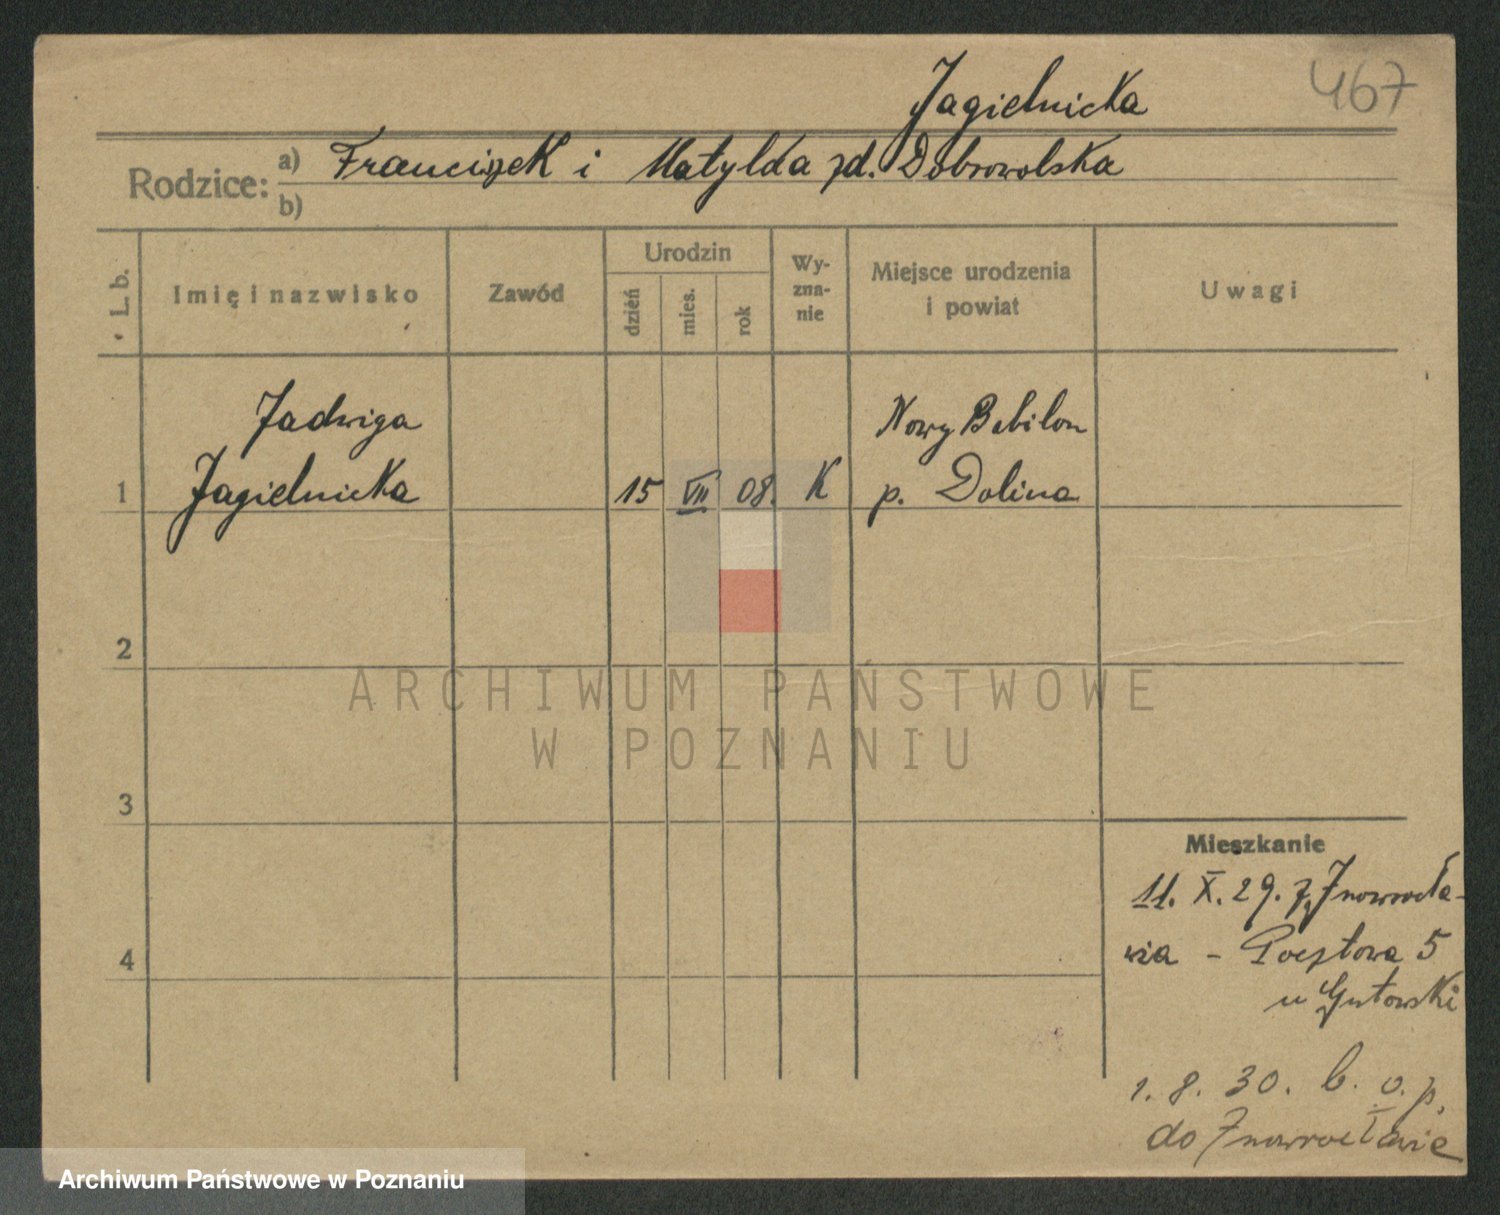 Jagielnicka
467
Rodzice: a) Franciszek i Matylda zd. Dobrowolska
b)
L. b.
Imię i nazwisko
Zawód
Urodzin
dzień
mies.
rok
Wy-
zna-
nie
Miejsce urodzenia
i powiat
Uwagi
Jadwiga
Nowy Babilon
1 Jagielnicka 15 VII 08. K p. Dolina
2
ARCHIWUM PAŃSTWOWE
W POZNANIU
3
Mieszkanie
11. X. 29. z Inowrocła-
wia - Pocztowa 5
4
u Gutowski
1. 8. 30. b. o. p.
do Inowrocławia
Archiwum Państwowe w Poznaniu